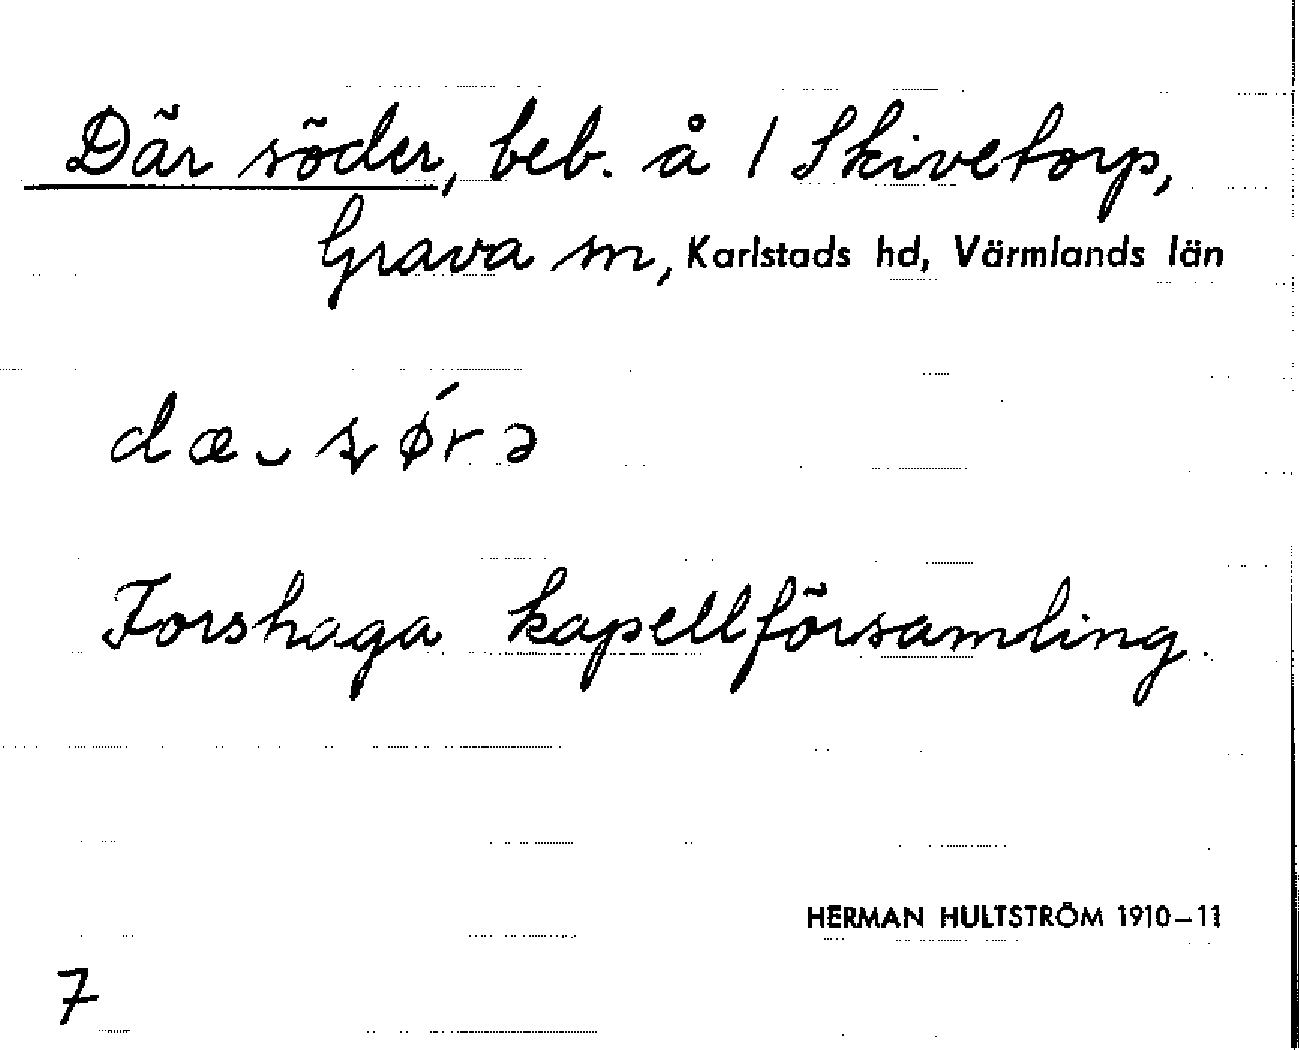 Där söder, beb. å 1 Skivetorp,
Grava sn, Karlstads hd, Värmlands län
dæ‿sǿrə
Forshaga kapellförsamling.
HERMAN HULTSTRÖM 1910–11
7